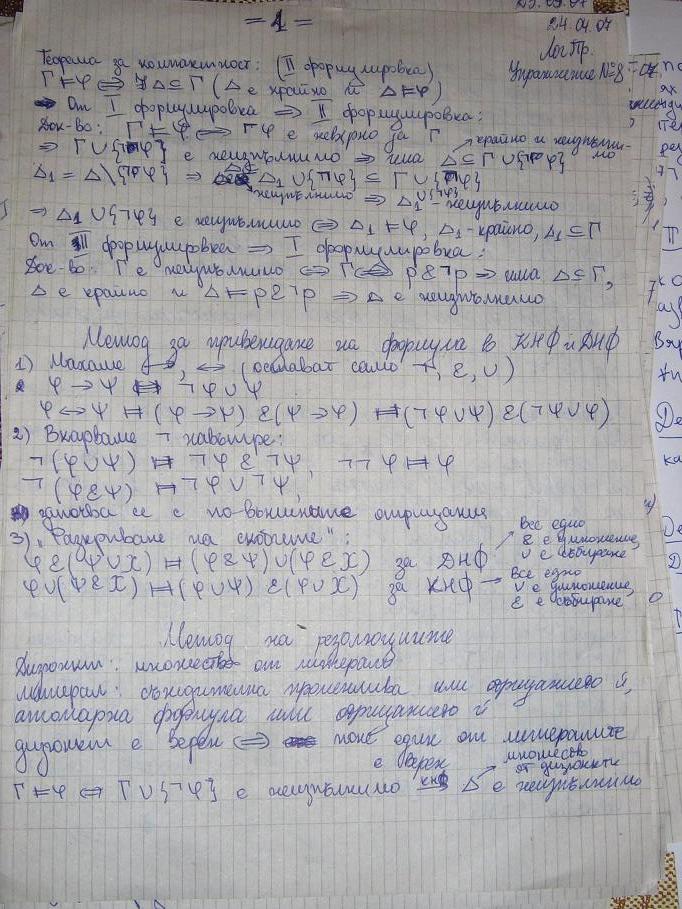 = 1 =
24.04.07
ЛогПр.
Упражнение №8
Теорема за компактност: (II формулировка)
Γ ⊨ φ ⟺ ∃Δ ⊆ Γ (Δ е крайно и Δ ⊨ φ)
От I формулировка ⟹ II формулировка:
Док-во: Γ ⊨ φ ⟺ ¬φ е невярно за Γ
⟹ Γ∪{¬φ} е неизпълнимо ⟹ има Δ ⊆ Γ∪{¬φ}
крайно и неизпълнимо
Δ₁ = Δ\{¬φ} ⟹ Δ₁∪{¬φ} ⊆ Γ∪{¬φ}
неизпълнимо ⟹ Δ₁∪{¬φ} - неизпълнимо
⟹ Δ₁∪{¬φ} е неизпълнимо ⟺ Δ₁ ⊨ φ, Δ₁-крайно, Δ₁ ⊆ Γ
От II формулировка ⟹ I формулировка:
Док-во: Γ е неизпълнимо ⟺ Γ ⊨ p&¬p ⟹ има Δ ⊆ Γ,
Δ е крайно и Δ ⊨ p&¬p ⟹ Δ е неизпълнимо
Метод за привеждане на формула в КНФ и ДНФ
1) Махаме →, ↔ (остават само ¬, &, ∪)
φ → ψ ⊨ ¬φ∪ψ
φ ↔ ψ ⊨ (φ → ψ) & (ψ → φ) ⊨ (¬φ∪ψ) & (¬ψ∪φ)
2) Вкарваме ¬ навътре:
¬(φ∪ψ) ⊨ ¬φ & ¬ψ, ¬¬φ ⊨ φ
¬(φ&ψ) ⊨ ¬φ∪¬ψ,
започва се с по-външните отрицания
3) „Разкриване на скобите":
φ&(ψ∪χ) ⊨ (φ&ψ)∪(φ&χ) за ДНФ
Все едно
& е умножение,
∪ е събиране
φ∪(ψ&χ) ⊨ (φ∪ψ) & (φ∪χ) за КНФ
Все едно
∪ е умножение,
& е събиране
Метод на резолюциите
Дизюнкт: множество от литерали
литерал: съждителна променлива или отрицанието ѝ,
атомарна формула или отрицанието ѝ
дизюнкт е верен ⟺ поне един от литералите
е верен
Γ ⊨ φ ⟺ Γ∪{¬φ} е неизпълнимо кнф Δ е неизпълнимо
множество
от дизюнкти